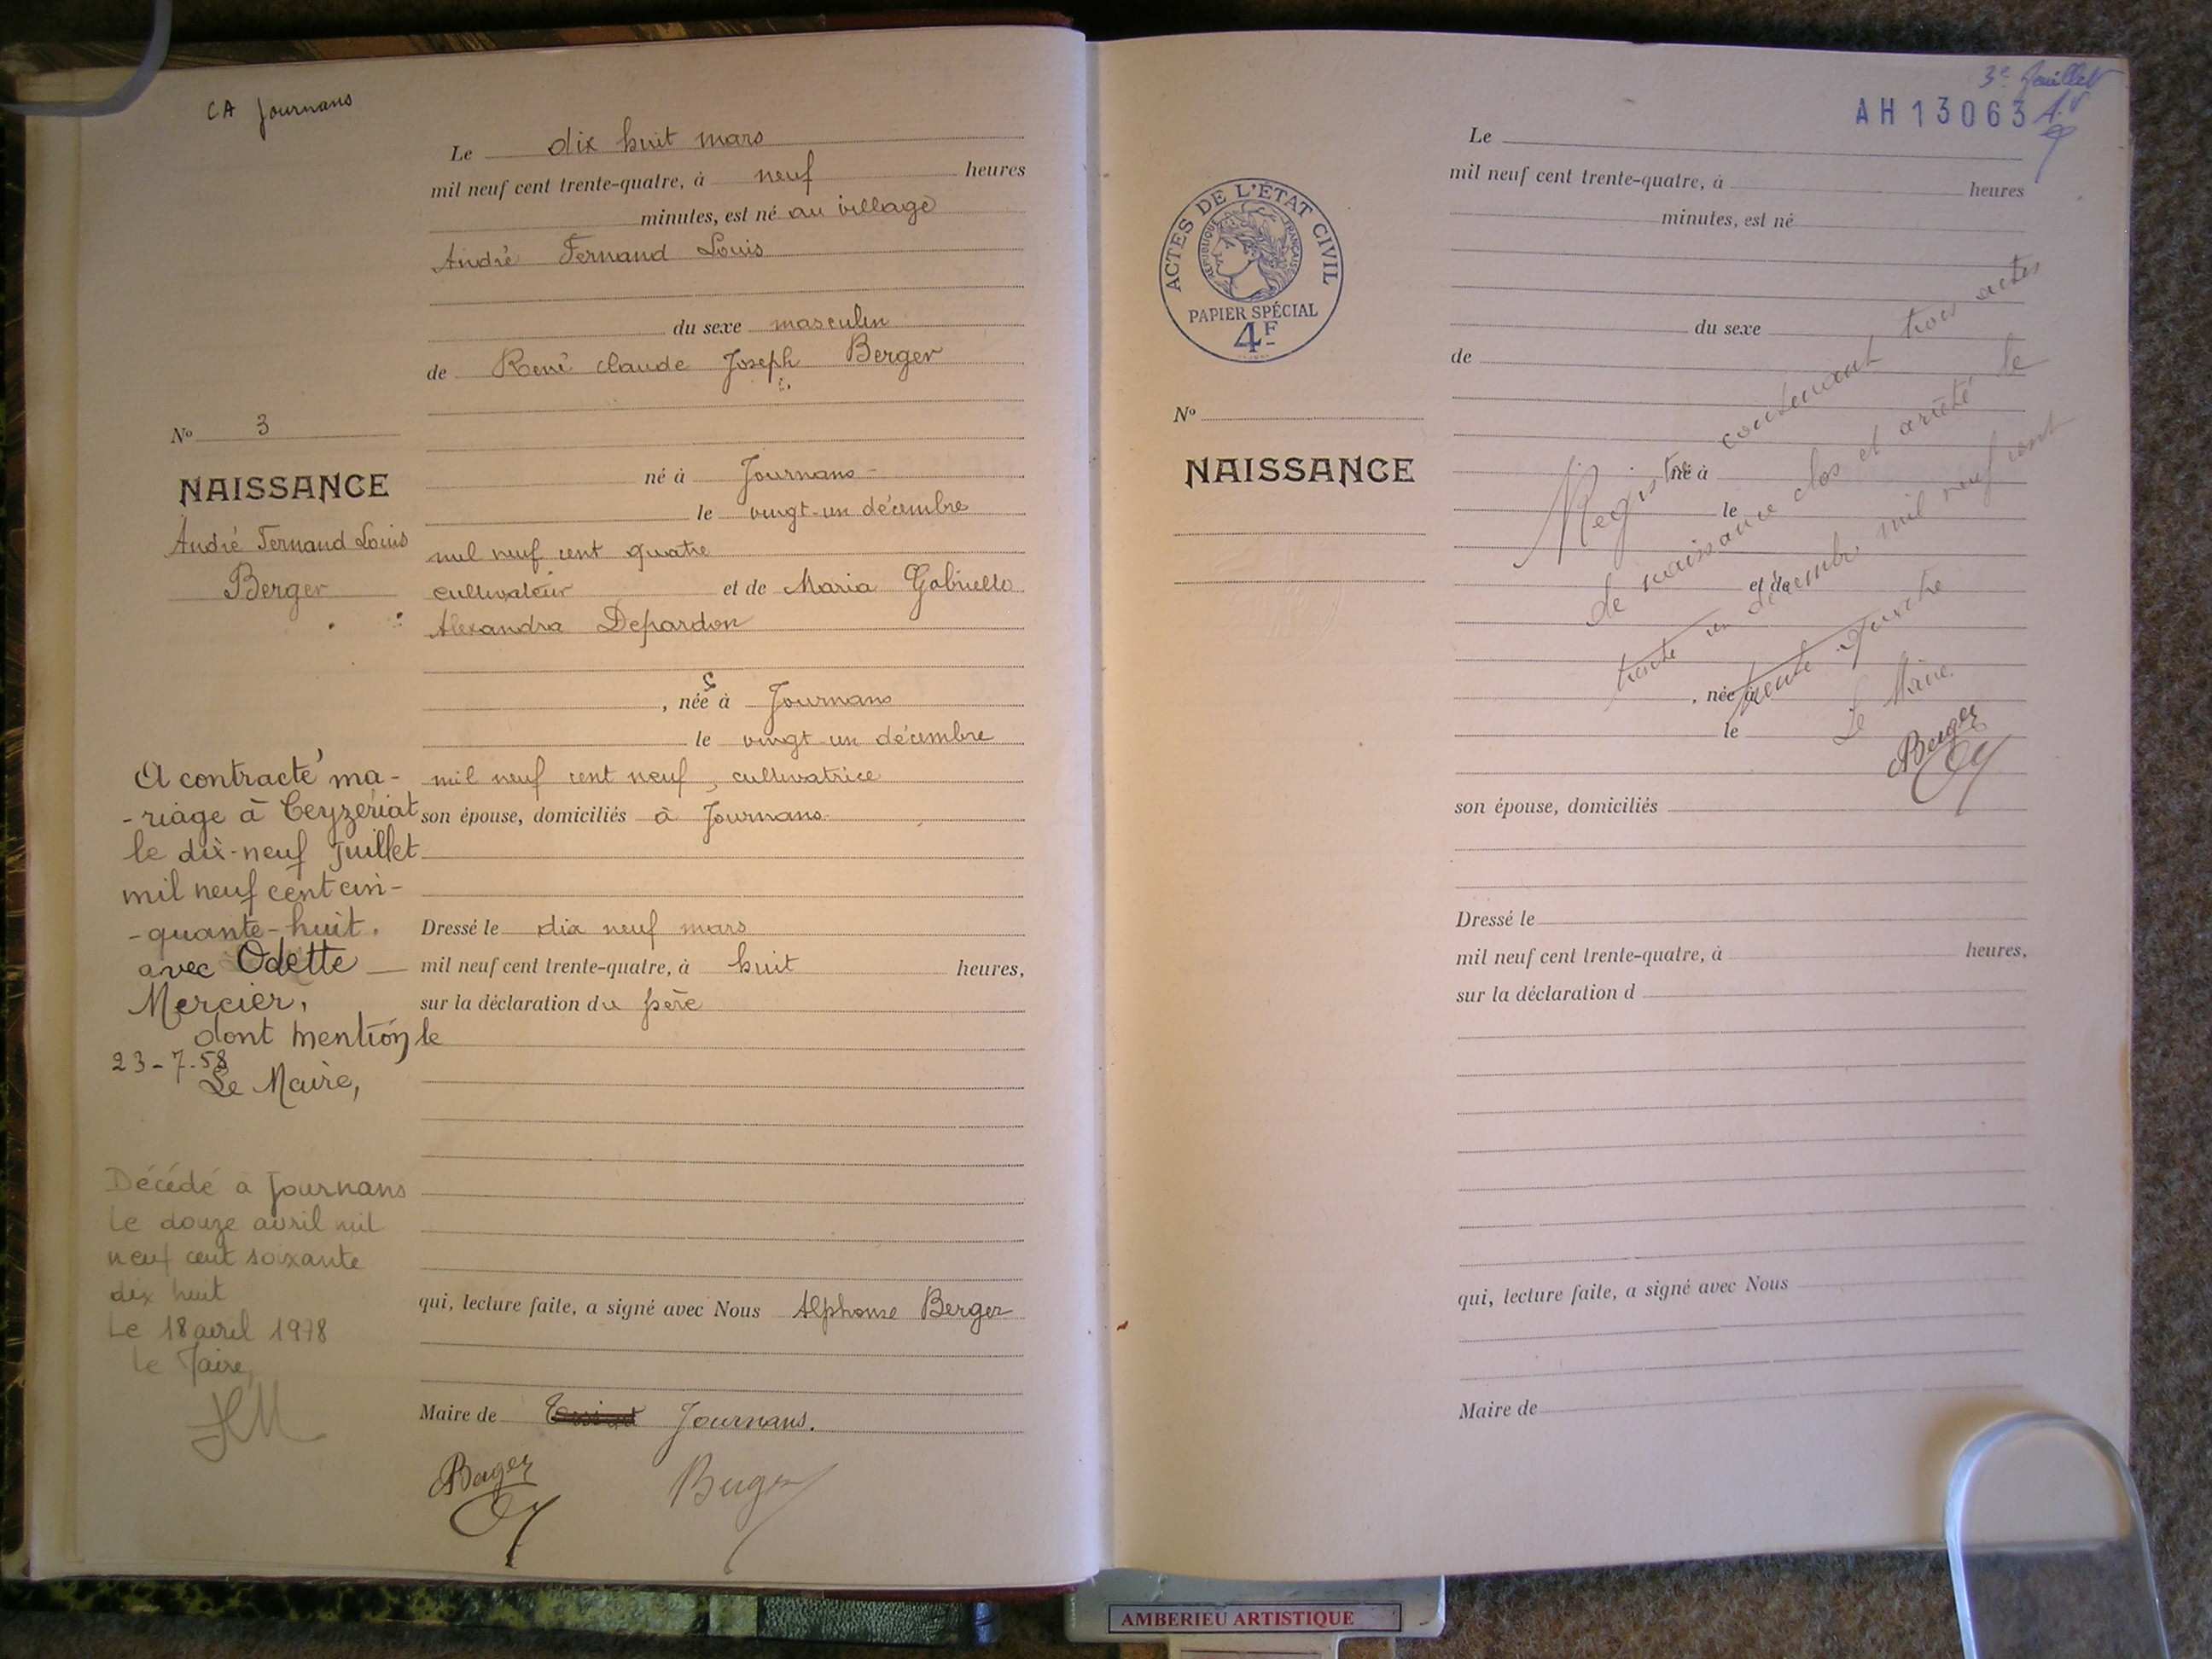 CA Journans
Le dix huit mars
mil neuf cent trente-quatre, à neuf heures
minutes, est né au village
André Fernand Louis
du sexe masculin
de René Claude Joseph Berger
né à Journans
le vingt-un décembre
mil neuf cent quatre
cultivateur et de Maria Gabrielle
Alexandra Depardon
, née à Journans
le vingt-un décembre
mil neuf cent neuf, cultivatrice
son épouse, domiciliés à Journans.
Dressé le dix neuf mars
mil neuf cent trente-quatre, à huit heures,
sur la déclaration du père
qui, lecture faite, a signé avec Nous Alphonse Berger
Maire de Journans.
Berger Berger
No 3
NAISSANCE
André Fernand Louis
Berger
A contracté ma-
-riage à Ceyzériat
le dix-neuf Juillet
mil neuf cent cin-
-quante-huit.
avec Odette
Mercier,
dont mention le
23-7-58
Le Maire,
Décédé à Journans
Le douze avril mil
neuf cent soixante
dix huit
Le 18 avril 1978
Le Maire,
3e feuillet
AH13063
ACTES DE L'ÉTAT CIVIL
REPUBLIQUE FRANÇAISE
PAPIER SPÉCIAL
4F
No
NAISSANCE
Le
mil neuf cent trente-quatre, à heures
minutes, est né
du sexe
de
né à
le
et de
, née à
le
son épouse, domiciliés
Dressé le
mil neuf cent trente-quatre, à heures,
sur la déclaration d
qui, lecture faite, a signé avec Nous
Maire de
Registre contenant trois actes
de naissance clos et arrêté le
trente un décembre mil neuf cent
trente quatre
Le Maire
Berger
AMBERIEU ARTISTIQUE